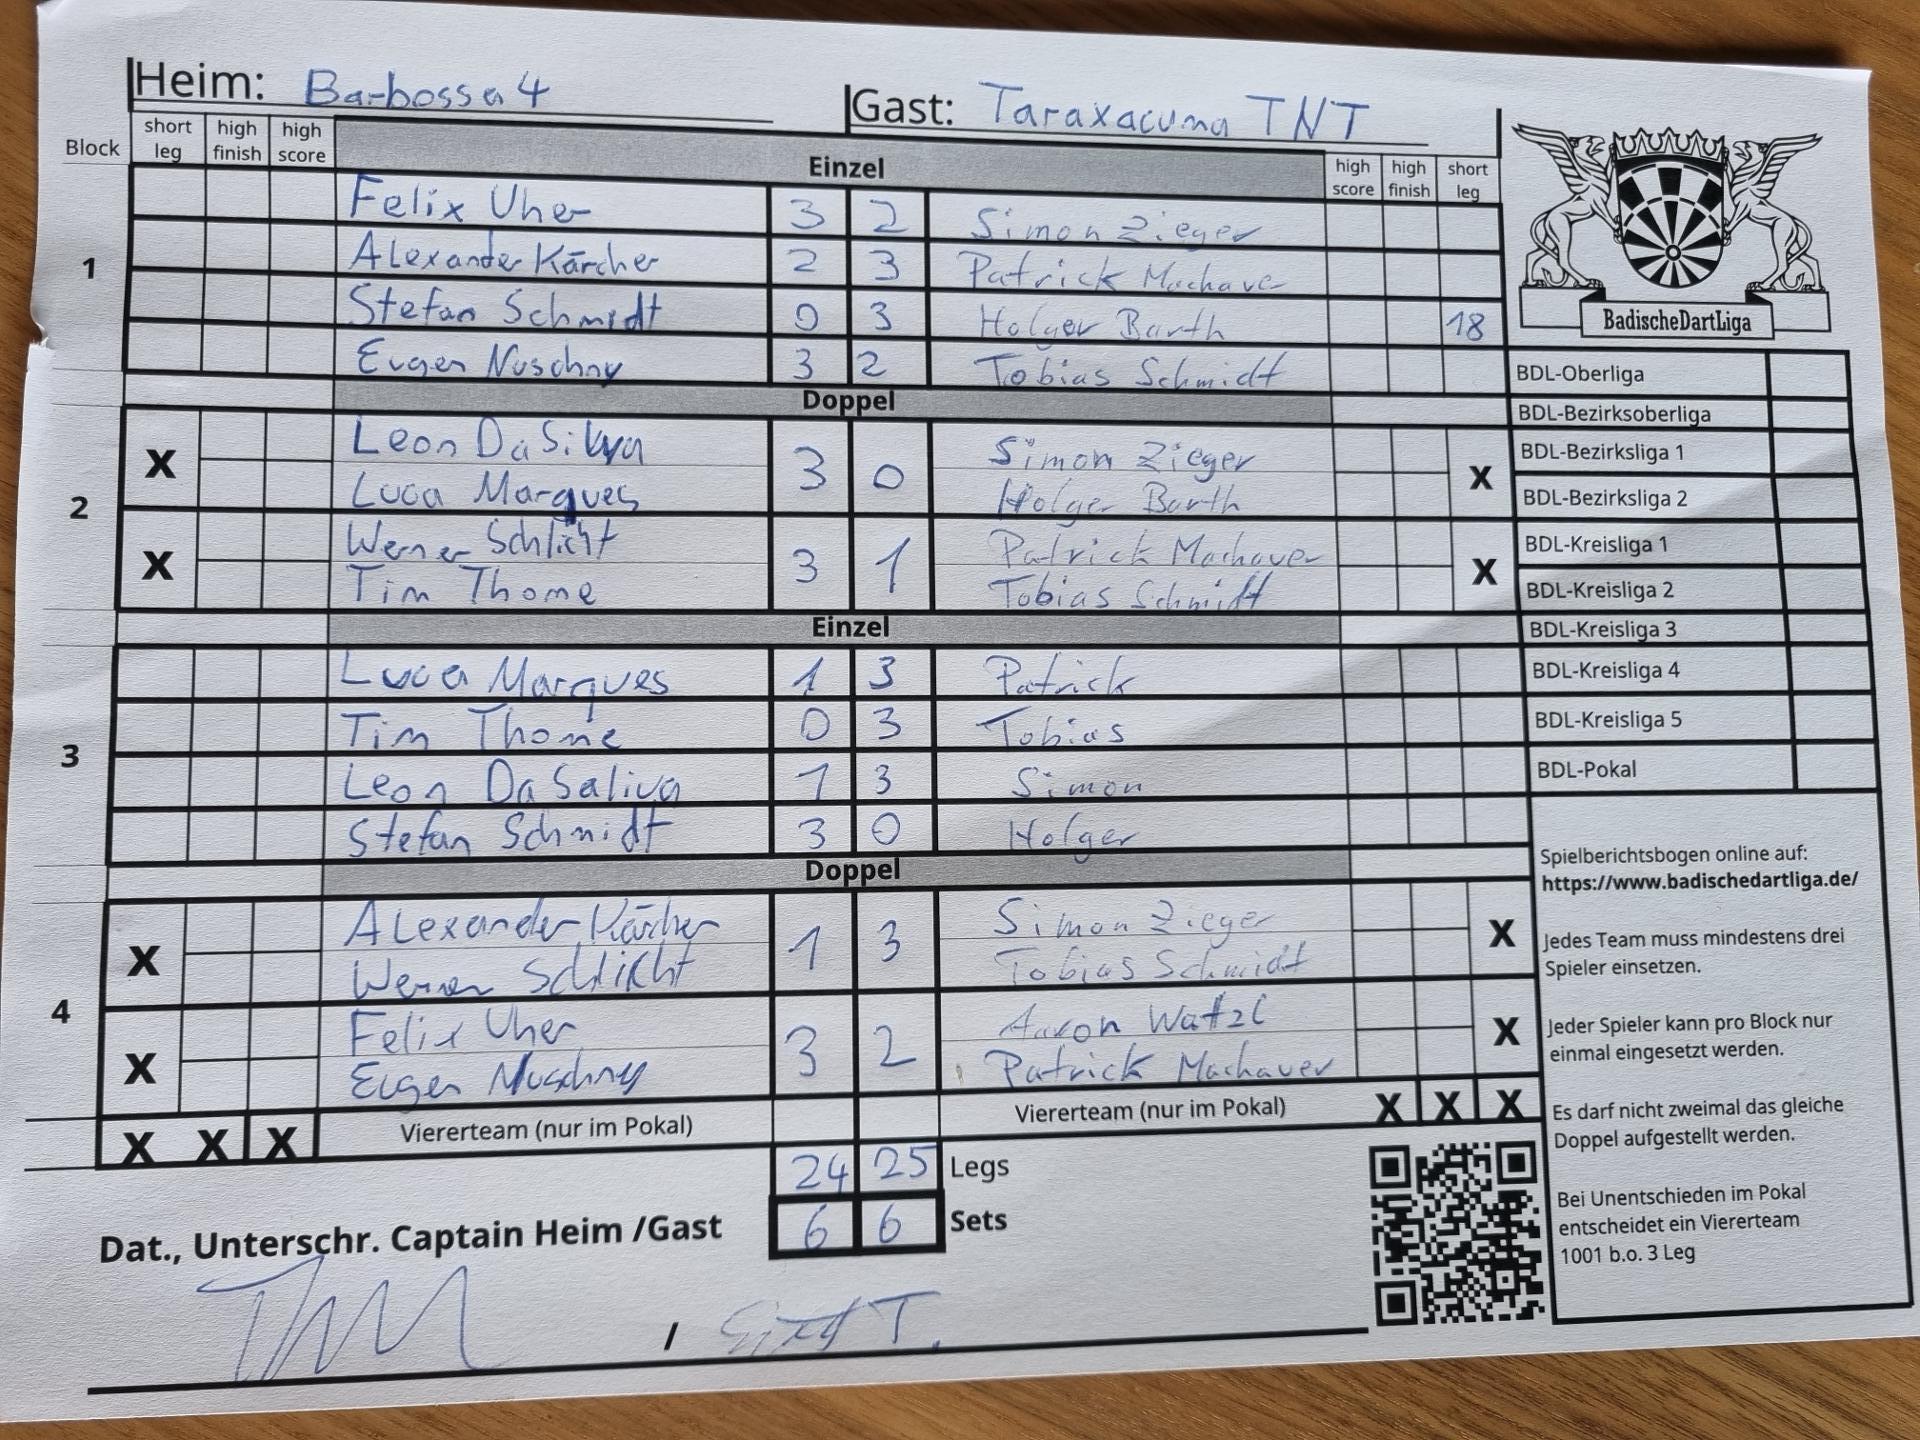 Heim: Barbossa 4 Gast: Taraxacuma TNT
Block short leg high finish high score Einzel high score high finish short leg
1
Felix Uher 3 2 Simon Zieger
Alexander Kärcher 2 3 Patrick Machaver
Stefan Schmidt 0 3 Holger Barth 18
Eugen Nuschny 3 2 Tobias Schmidt
Doppel
2
X Leon DaSilva 3 0 Simon Zieger X
Luca Marques Holger Barth
X Werner Schlicht 3 1 Patrick Machaver X
Tim Thome Tobias Schmidt
Einzel
3
Luca Marques 1 3 Patrick
Tim Thome 0 3 Tobias
Leon DaSaliva 1 3 Simon
Stefan Schmidt 3 0 Holger
Doppel
4
X Alexander Kärcher 1 3 Simon Zieger X
Werner Schlicht Tobias Schmidt
X Felix Uher 3 2 Aaron Watzl X
Eugen Nuschny Patrick Machaver
X X X Viererteam (nur im Pokal) Viererteam (nur im Pokal) X X X
24 25 Legs
6 6 Sets
Dat., Unterschr. Captain Heim /Gast
/
BadischeDartLiga
BDL-Oberliga
BDL-Bezirksoberliga
BDL-Bezirksliga 1
BDL-Bezirksliga 2
BDL-Kreisliga 1
BDL-Kreisliga 2
BDL-Kreisliga 3
BDL-Kreisliga 4
BDL-Kreisliga 5
BDL-Pokal
Spielberichtsbogen online auf:
https://www.badischedartliga.de/
Jedes Team muss mindestens drei
Spieler einsetzen.
Jeder Spieler kann pro Block nur
einmal eingesetzt werden.
Es darf nicht zweimal das gleiche
Doppel aufgestellt werden.
Bei Unentschieden im Pokal
entscheidet ein Viererteam
1001 b.o. 3 Leg